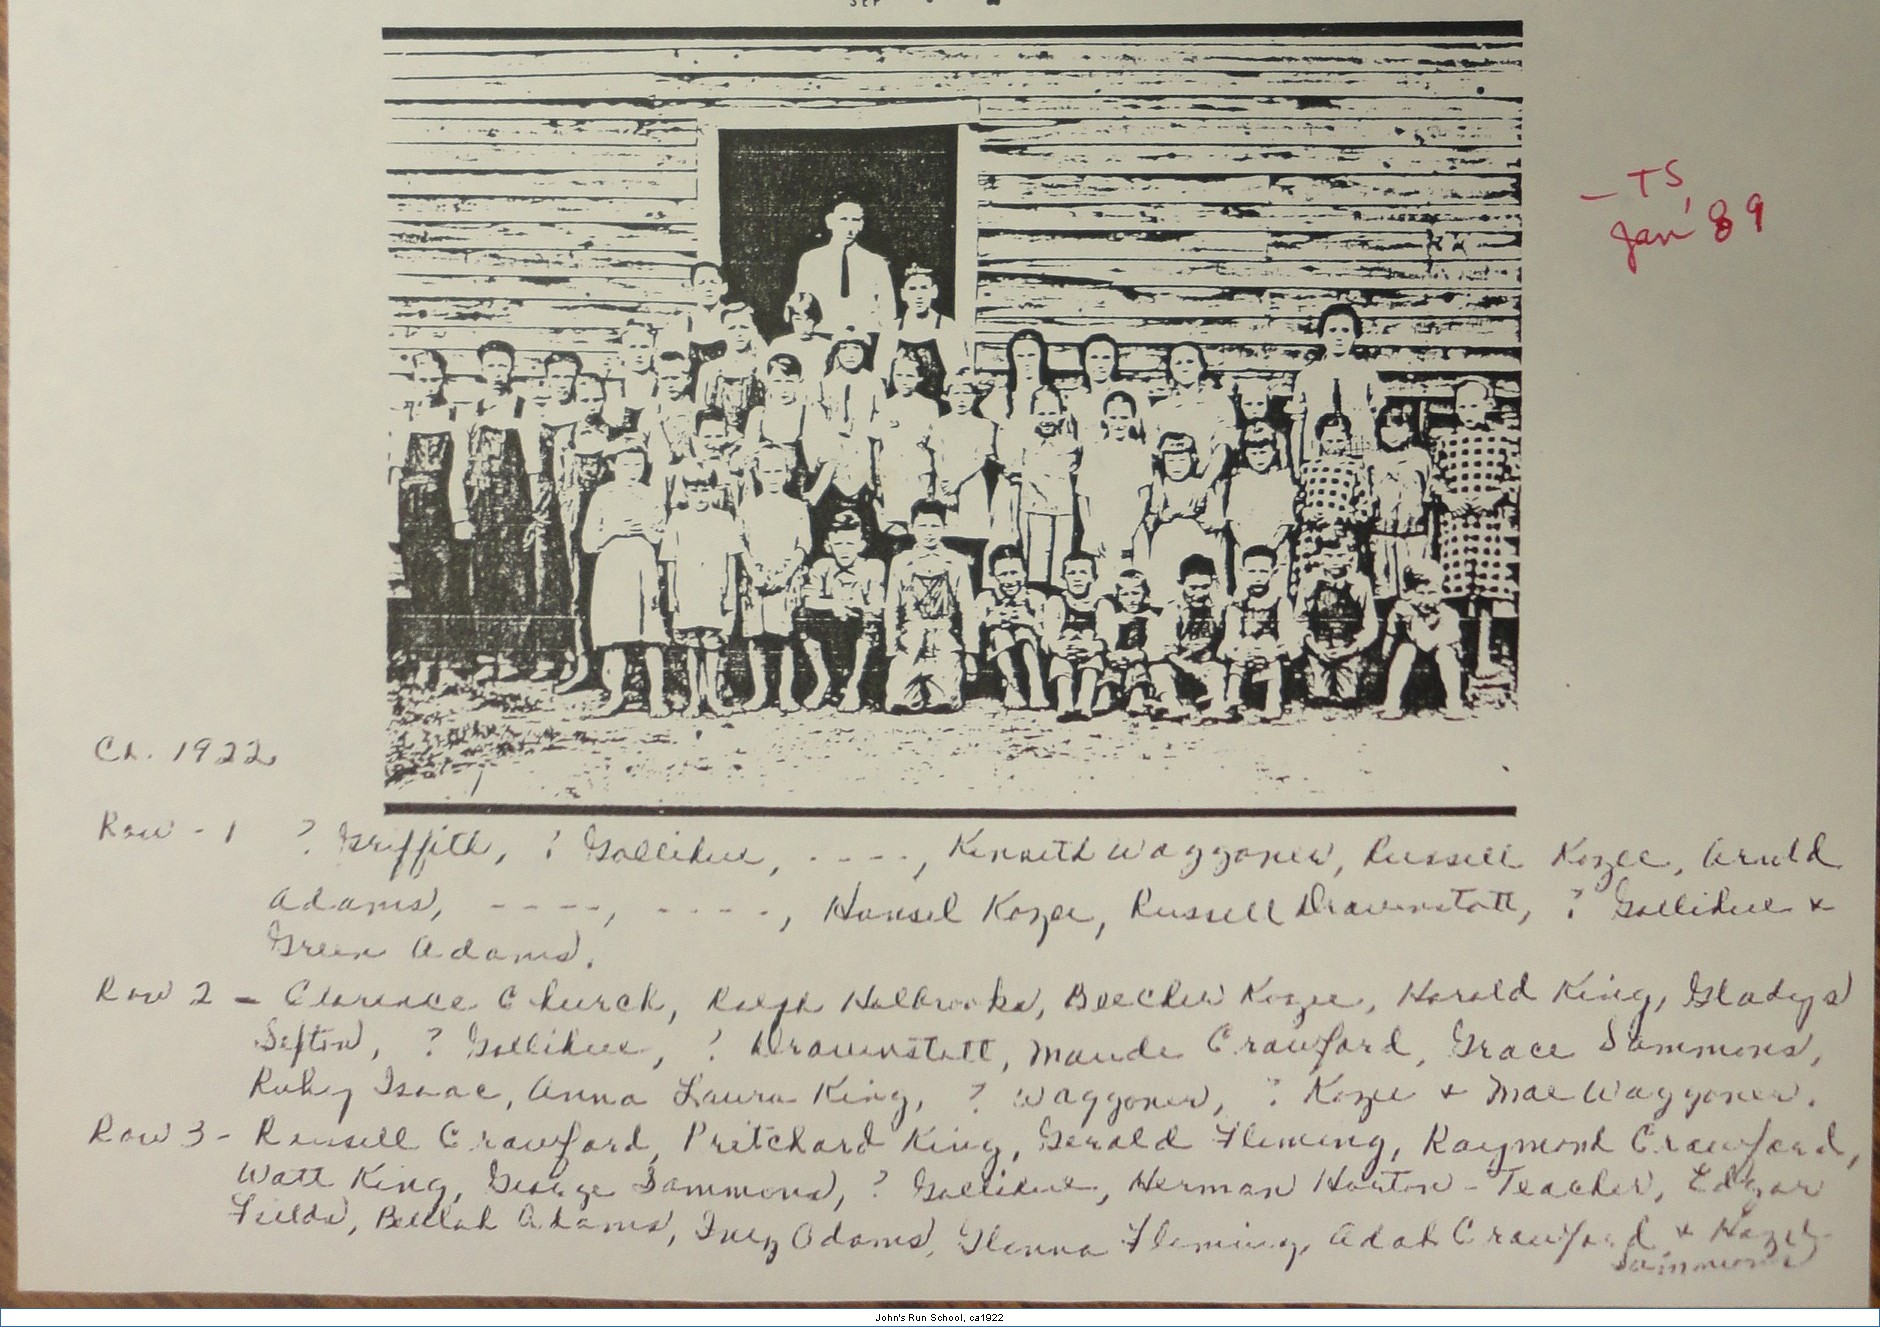 SEP
- TS,
Jan '89
Ca. 1922
Row - 1 ? Griffith, ? Gollihue, - - - -, Kenneth Waggoner, Russell Kozee, Arnold
Adams, - - - -, - - - -, Hansel Kozee, Russell Dravenstott, ? Gollihue &
Green Adams.
Row 2 - Clarence Church, Ralph Holbrooks, Beecher Kozee, Harold King, Gladys
Sefton, ? Gollihue, ? Dravenstott, Maude Crawford, Grace Sammons,
Ruby Isaac, Anna Laura King, ? Waggoner, ? Kozee & Mae Waggoner.
Row 3 - Russell Crawford, Pritchard King, Gerald Fleming, Raymond Crawford,
Watt King, George Sammons, ? Gollihue, Herman Horton - Teacher, Edgar
Fields, Beulah Adams, Inez Adams, Glenna Fleming, Adah Crawford & Hazel
Sammons
John's Run School, ca1922